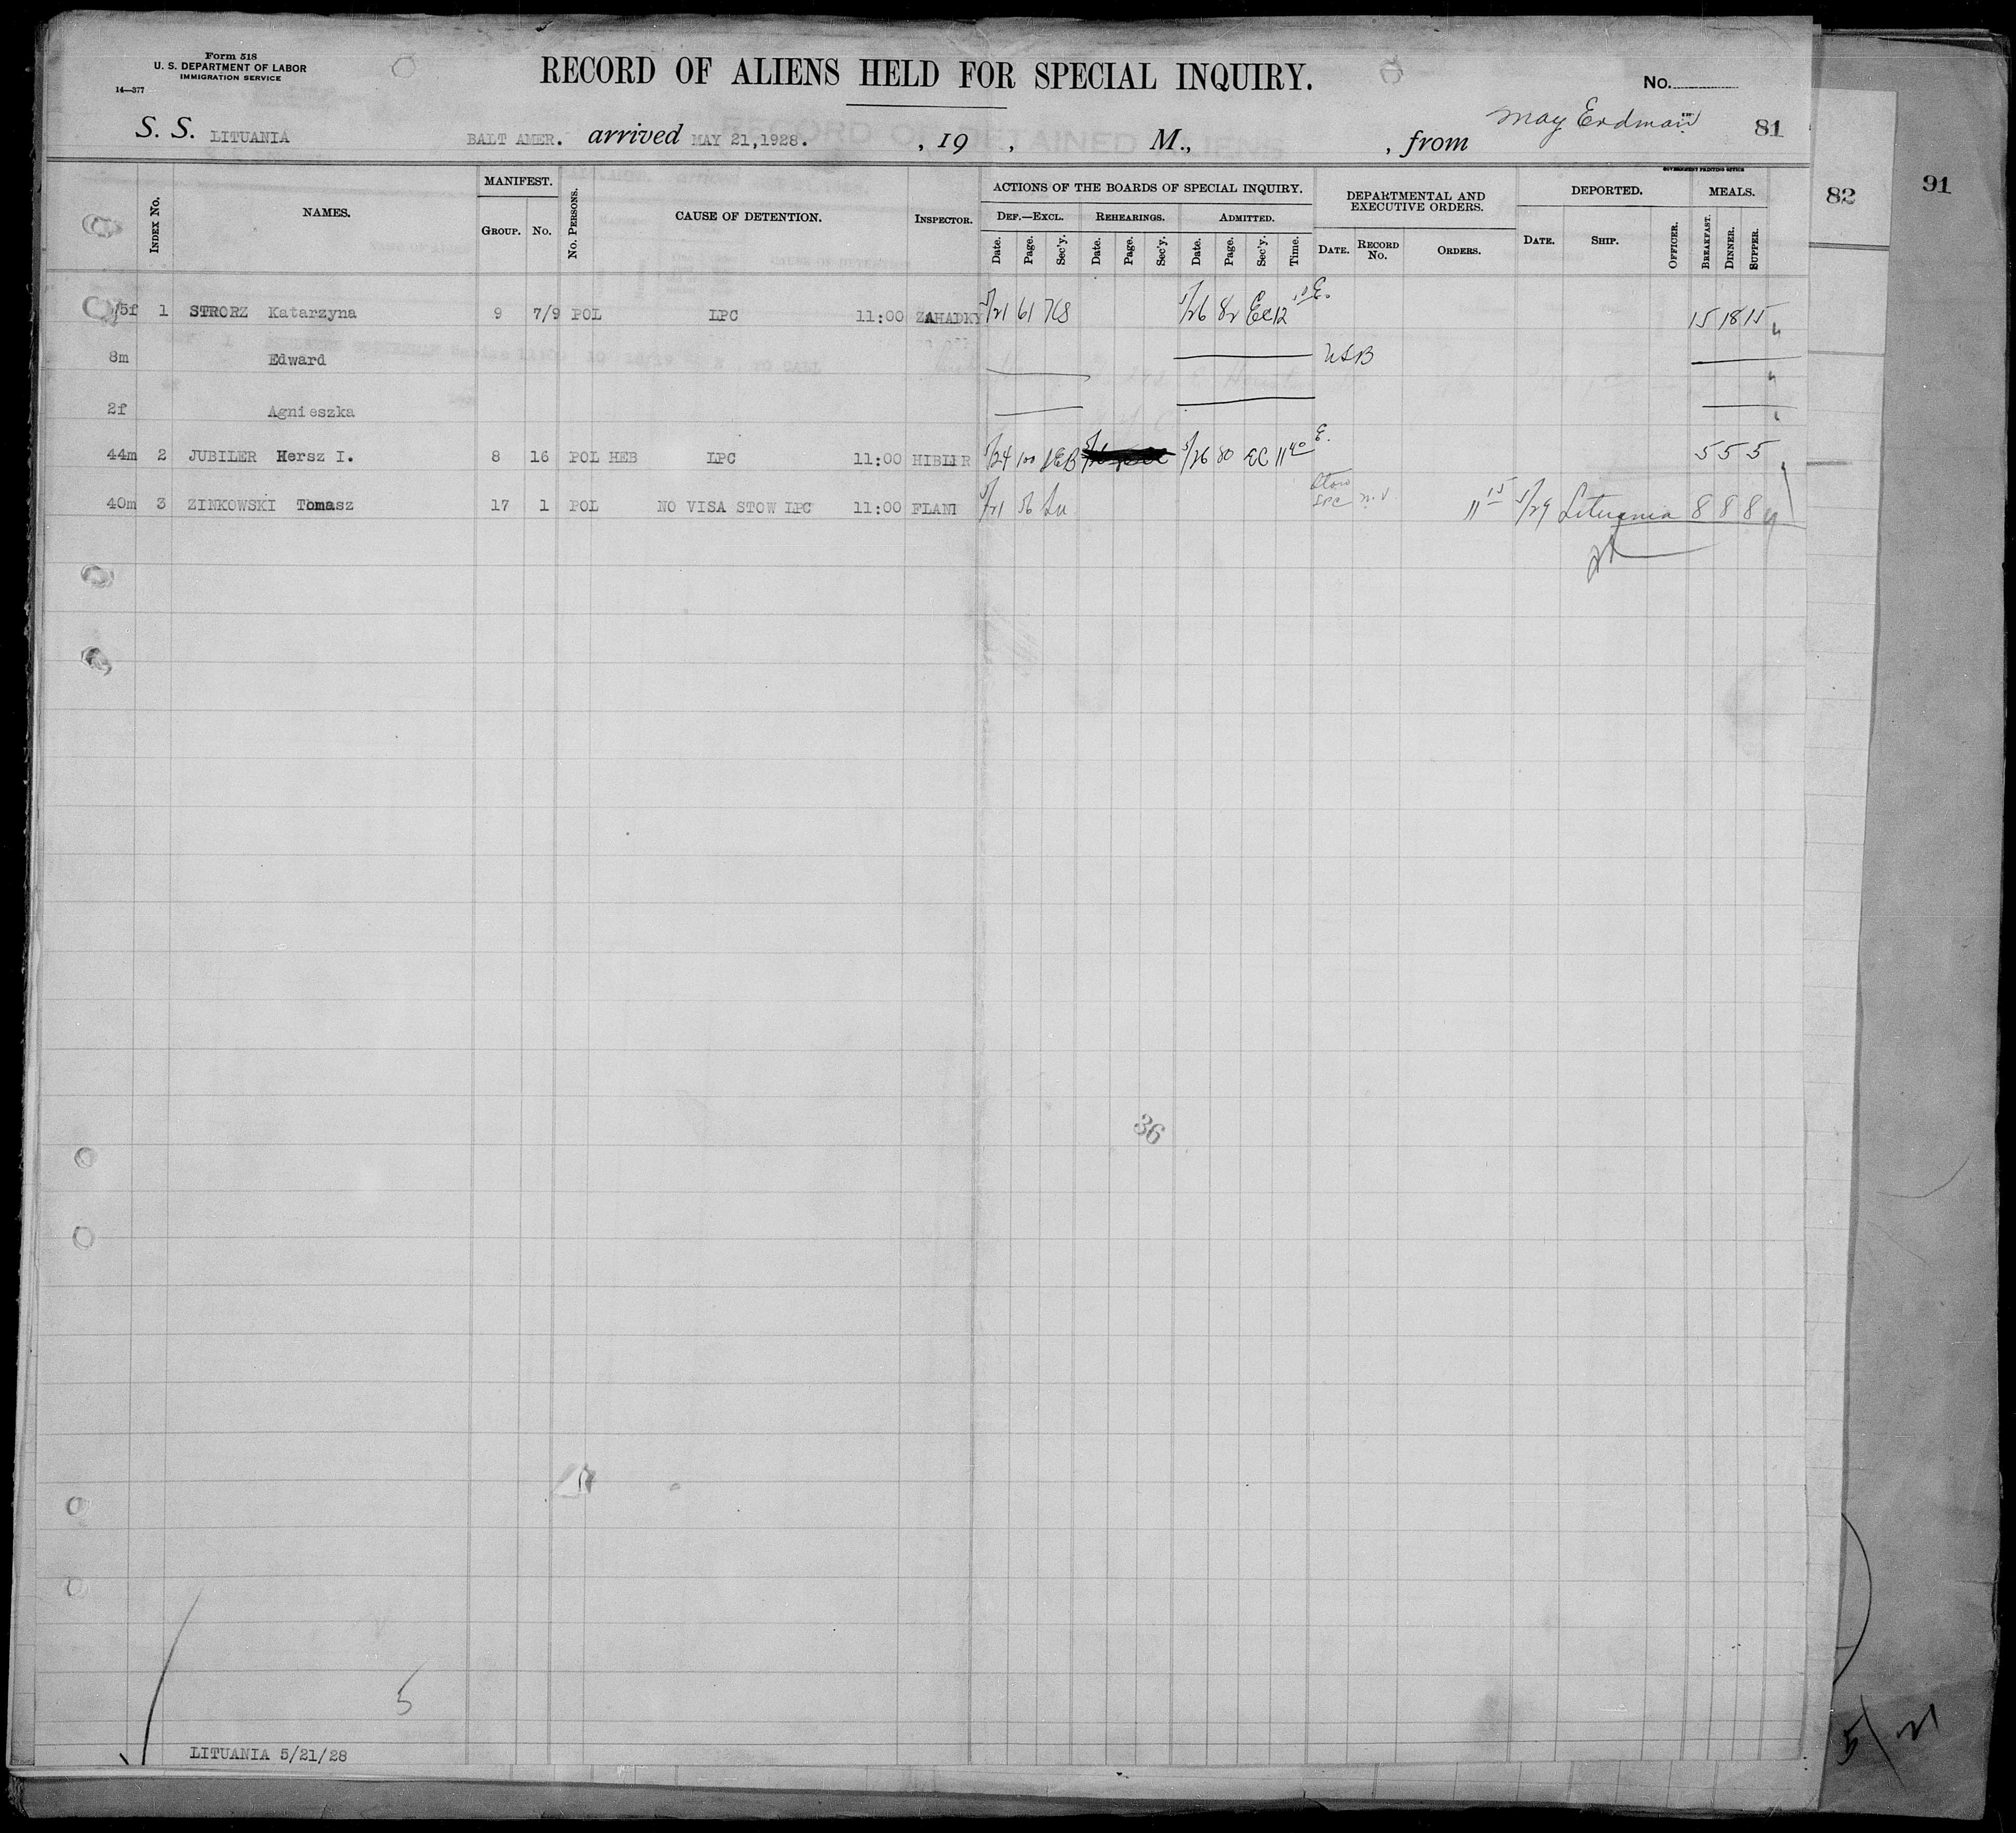 Form 518
U. S. DEPARTMENT OF LABOR
IMMIGRATION SERVICE
14—377
RECORD OF ALIENS HELD FOR SPECIAL INQUIRY.
No.
May Erdman
81
S. S. LITUANIA BALT AMER. arrived MAY 21,1928. , 19 , M., , from
GOVERNMENT PRINTING OFFICE
82
91
INDEX No. NAMES. MANIFEST. GROUP. No. No. PERSONS. CAUSE OF DETENTION. INSPECTOR. ACTIONS OF THE BOARDS OF SPECIAL INQUIRY. DEF.—EXCL. Date. Page. Sec'y. REHEARINGS. Date. Page. Sec'y. ADMITTED. Date. Page. Sec'y. Time. DEPARTMENTAL AND EXECUTIVE ORDERS. DATE. RECORD No. ORDERS. DEPORTED. DATE. SHIP. OFFICER. MEALS. BREAKFAST. DINNER. SUPPER.
5f 1 STRORZ Katarzyna 9 7/9 POL LPC 11:00 ZAHADKY 5/21 61 5/26 82 EC 12 E. 15 18 15
8m Edward USB
2f Agnieszka
44m 2 JUBILER Hersz I. 8 16 POL HEB LPC 11:00 HIBLER 5/24 100 5/26 80 EC 11 40 E. 5 5 5
40m 3 ZINKOWSKI Tomasz 17 1 POL NO VISA STOW LPC 11:00 FLANI 5/21 56 Stow LPC N.V. 11 15 5/29 Lituania 8 8 8
36
5
LITUANIA 5/21/28